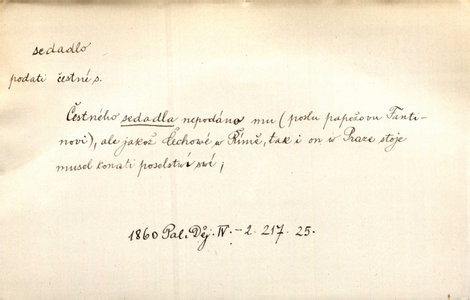 sedadlo
podati čestné s.
Čestného sedadla nepodáno mu (poslu papežovu Fanti-
novi), ale jakož Čechowé w Římě, tak i on w Praze stoje
musel konati poselstwí své;
1860 Pal. Děj. IV. - 2. 217. 25.